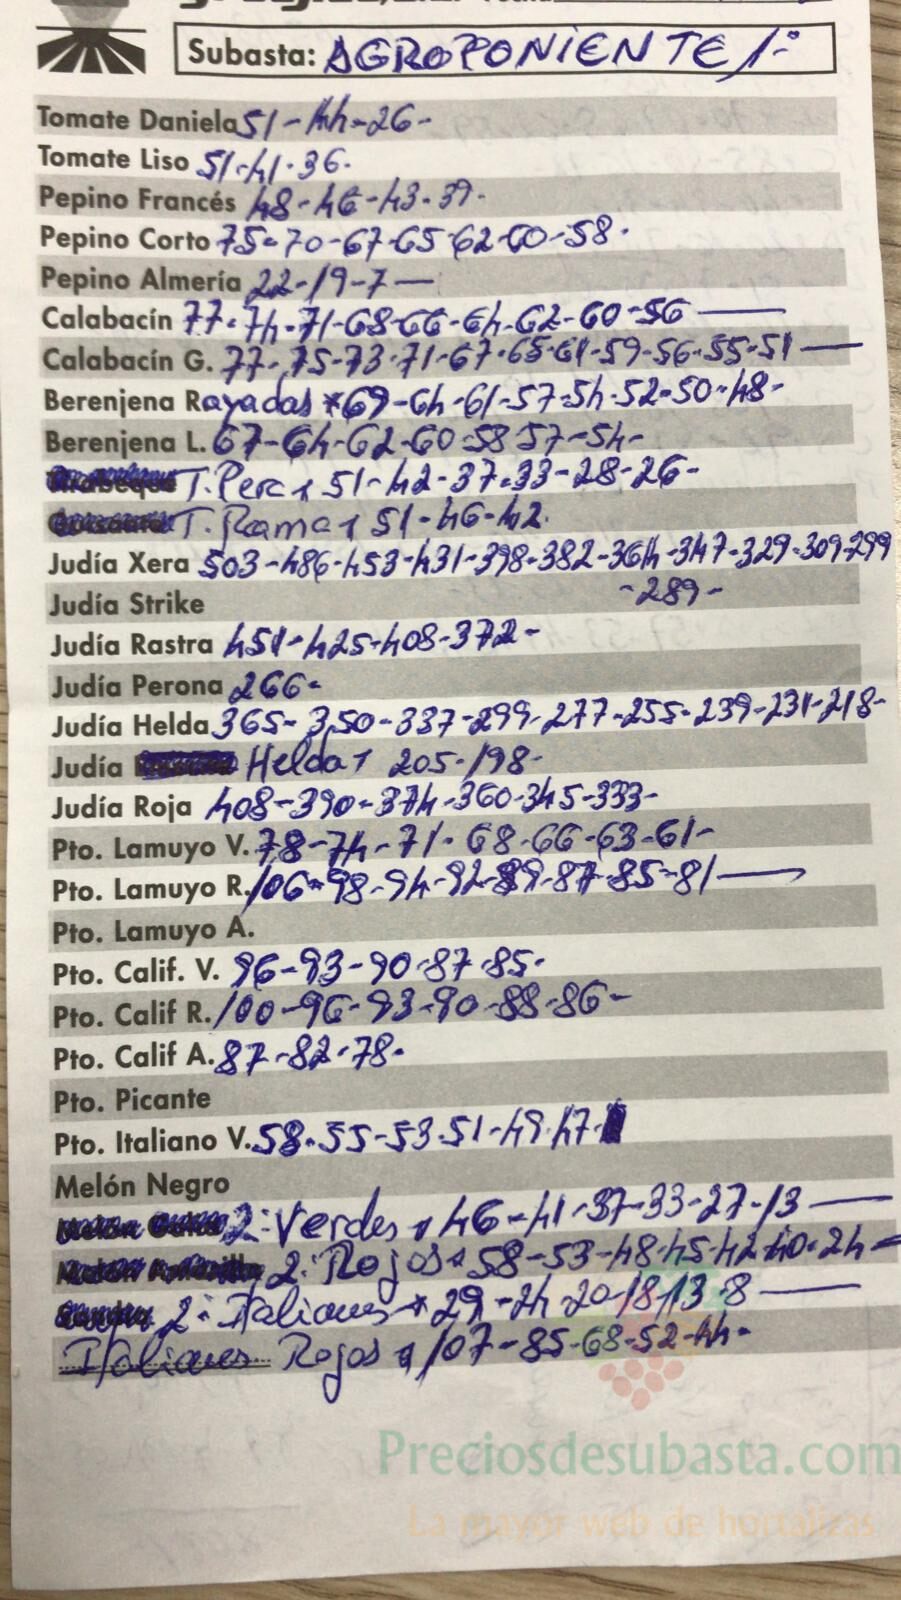 Subasta: AGROPONIENTE 1-
Tomate Daniela 51-44-26-
Tomate Liso 51-41-36.
Pepino Francés 48-46-43-39-
Pepino Corto 75-70-67-65-62-60-58-
Pepino Almería 22-19-7—
Calabacín 77-74-71-68-66-64-62-60-56—
Calabacín G. 77-75-73-71-67-65-61-59-56-55-51—
Berenjena Rayadas *69-64-61-57-54-52-50-48-
Berenjena L. 67-64-62-60-58-57-54-
T. Pera 51-42-37-33-28-26-
T. Rama 51-46-42.
Judía Xera 503-486-453-431-398-382-364-347-329-309-299
-289-
Judía Strike
Judía Rastra 451-425-408-372-
Judía Perona 266-
Judía Helda 365-350-337-299-277-255-239-231-218-
Judía Helda 205-198-
Judía Roja 408-390-374-360-345-333-
Pto. Lamuyo V. 78-74-71-68-66-63-61-
Pto. Lamuyo R. 106-98-94-92-89-87-85-81—
Pto. Lamuyo A.
Pto. Calif. V. 96-93-90-87-85-
Pto. Calif R. 100-96-93-90-88-86-
Pto. Calif A. 87-82-78-
Pto. Picante
Pto. Italiano V. 58-55-53-51-49-47-
Melón Negro
2: Verdes 46-41-37-33-27-13—
2: Rojos 58-53-48-45-42-40-24-
2: Italianos * 29-24-20-18-13-8—
Italianos Rojos 107-85-68-52-44-
Preciosdesubasta.com
La mayor web de hortalizas